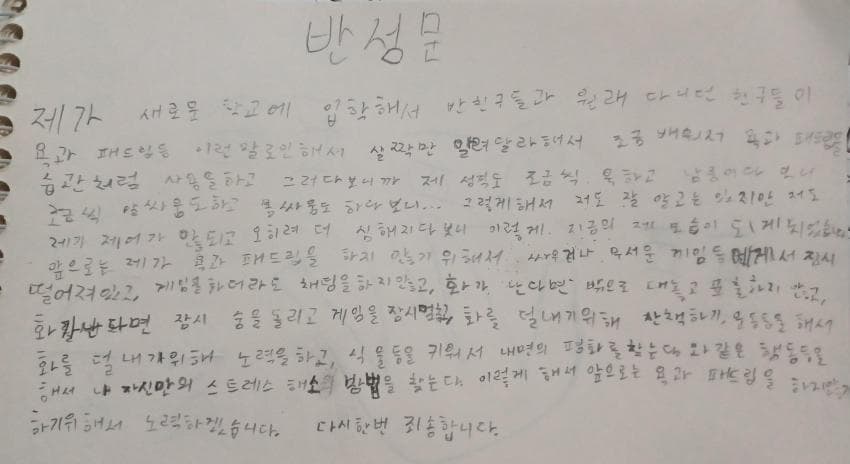 반성문
제가 새로운 학교에 입학해서 반친구들과 원래 다니던 친구들이
욕과 패드립등 이런말로인해서 살짝만 알려달라해서 조금 배워서 욕과 패드립을
습관처럼 사용을하고 그러다보니까 제 성격도 조금씩 욱하고 보니
조금씩 말싸움도하고 몸싸움도 하다보니... 그렇게해서 저도 잘 알고는 있지만 저도
제가 제어가 안되고 오히려 더 심해지다보니 이렇게. 지금의 제 모습이
앞으로는 제가 욕과 패드립을 하지 않기위해서 싸우거나 무서운 게임들에게서 잠시
떨어져있고, 게임을하더라도 채팅을하지않고, 화가 난다면 밖으로 대놓고 표출하지 않고,
화가난다면 잠시 숨을돌리고 게임을 잠시멈추고, 화를 덜내기위해 산책하기, 운동등을 해서
화를 덜내기위해 노력을하고, 식물등을 키워서 내면의 평화를찾는다와같은 행동등을
해서 나 자신만의 스트레스 해소의 방법을 찾는다. 이렇게 해서 앞으로는 욕과 패드립을
하기위해서 노력하겠습니다. 다시한번 죄송합니다.